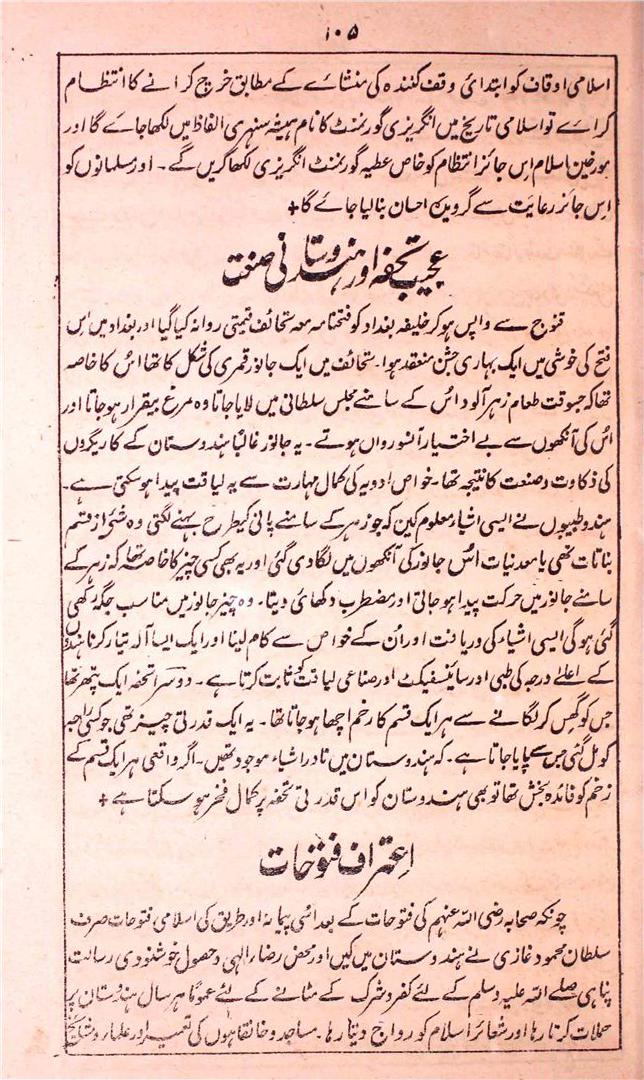 ۱۰۵
اسلامی اوقاف کو ابتدائی وقف کنندہ کی منشائے کے مطابق خرچ کرانے کا انتظام
کراے تو اسلامی تاریخ میں انگریزی گورنمنٹ کا نام ہمیشہ سنہری الفاظ میں لکھا جائے گا اور
مورخین اسلام اس جائز انتظام کو خاص عطیہ گورنمنٹ انگریزی لکھا کریں گے۔ اور مسلمانوں کو
اس جائز رعایت سے گرویدہ احسان بنا لیا جائے گا +
عجیب تحفہ اور ہندوستانی صنعت
قنوج سے واپس ہو کر خلیفہ بغداد کو فتحنامہ معہ تحائف قیمتی روانہ کیا گیا اور بغداد میں اس
فتح کی خوشی میں ایک بہاری جشن منعقد ہوا۔ تحائف میں ایک جانور قمری کی شکل کا تھا اس کا خاصہ
تھا کہ جسوقت طعام زہر آلود اُس کے سامنے مجلس سلطانی میں لایا جاتا وہ مرغ بیقرار ہو جاتا اور
اُس کی آنکھوں سے بے اختیار آنسو رواں ہوتے۔ یہ جانور غالباً ہندوستان کے کاریگروں
کی ذکاوت و صنعت کا نتیجہ تھا۔ خواص ادویہ کی کمال مہارت سے یہ لیاقت پیدا ہو سکتی ہے۔
ہندو طبیبوں نے ایسی اشیاء معلوم کیں کہ جو زہر کے سامنے پانی کیطرح بہنے لگتی وہ شئی از قسم
نباتات تھی یا معدنیات اُس جانور کی آنکھوں میں لگا دی گئی اور یہ بھی کسی چیز کا خاصہ تھا کہ زہر کے
سامنے جانور میں حرکت پیدا ہو جاتی اور مضطرب دکھائی دیتا۔ وہ چیز جانور میں مناسب جگہ رکھی
گئی ہو گی ایسی اشیاء کی دریافت اور اُن کے خواص سے کام لینا اور ایک ایسا آلہ تیار کرنا ہندؤں
کے اعلےٰ درجہ کی طبی اور سائینٹیفک اور صناعی لیاقت کو ثابت کرتا ہے۔ دوسرا تحفہ ایک پتھر تھا
جس کو گھس کر لگانے سے ہر ایک قسم کا زخم اچھا ہو جاتا تھا۔ یہ ایک قدرتی چیز تھی جو کسی راجہ
کو مل گئی جس سے پایا جاتا ہے۔ کہ ہندوستان میں نادر اشیاء موجود تھیں۔ اگر واقعی ہر ایک قسم کے
زخم کو فائدہ بخش تھا تو بھی ہندوستان کو اس قدرتی تحفہ پر کمال فخر ہو سکتا ہے +
اعتراف فتوحات
چونکہ صحابہ رضی اللہ عنہم کی فتوحات کے بعد اسی پیمانہ اور طریق کی اسلامی فتوحات صرف
سلطان محمود غازی نے ہندوستان میں کیں اور محض رضاء الٰہی و حصول خوشنودی رسالت
پناہی صلے اللہ علیہ وسلم کے لئے کفر و شرک کے مٹانے کے لئے عموماً ہر سال ہندوستان پر
حملات کرتا رہا اور شعائر اسلام کو رواج دیتا رہا۔ مساجد و خانقاہوں کی تعمیر اور علماء و مشائخ